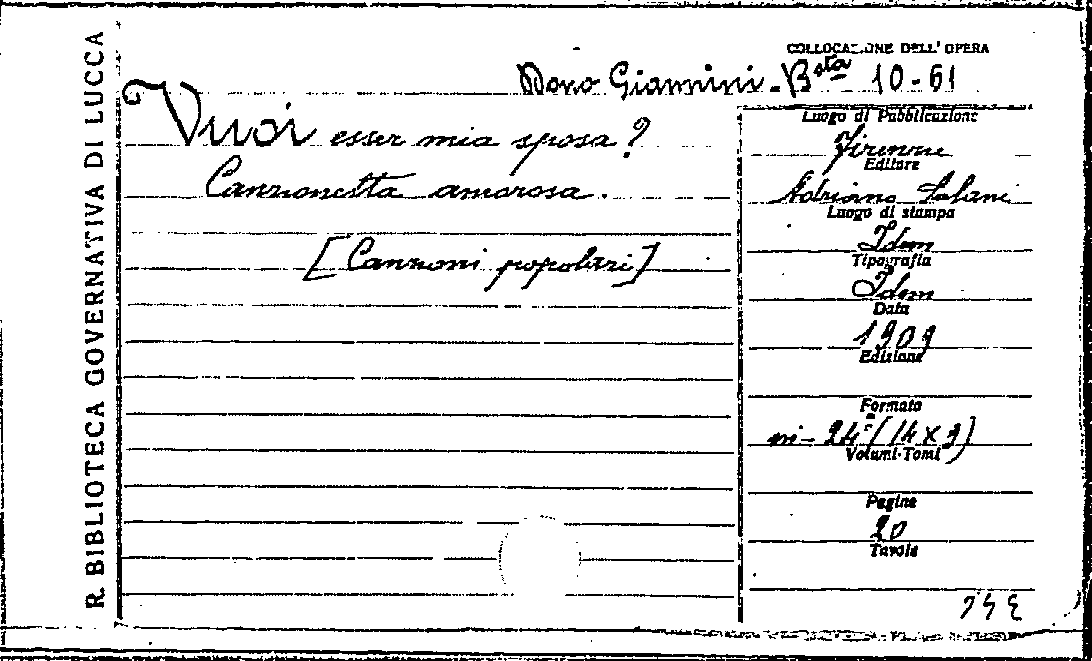 R. BIBLIOTECA GOVERNATIVA DI LUCCA
COLLOCAZIONE DELL'OPERA
Dono Giannini - Bsta 10-61
Vuoi esser mia sposa?
Canzonetta amorosa.
[Canzoni popolari]
Luogo di Pubblicazione
Firenze
Editore
Adriano Salani
Luogo di stampa
Idem
Tipografia
Idem
Data
1909
Edizione
Formato
in-24° (14 x 9)
Volumi-Tomi
Pagine
20
Tavole